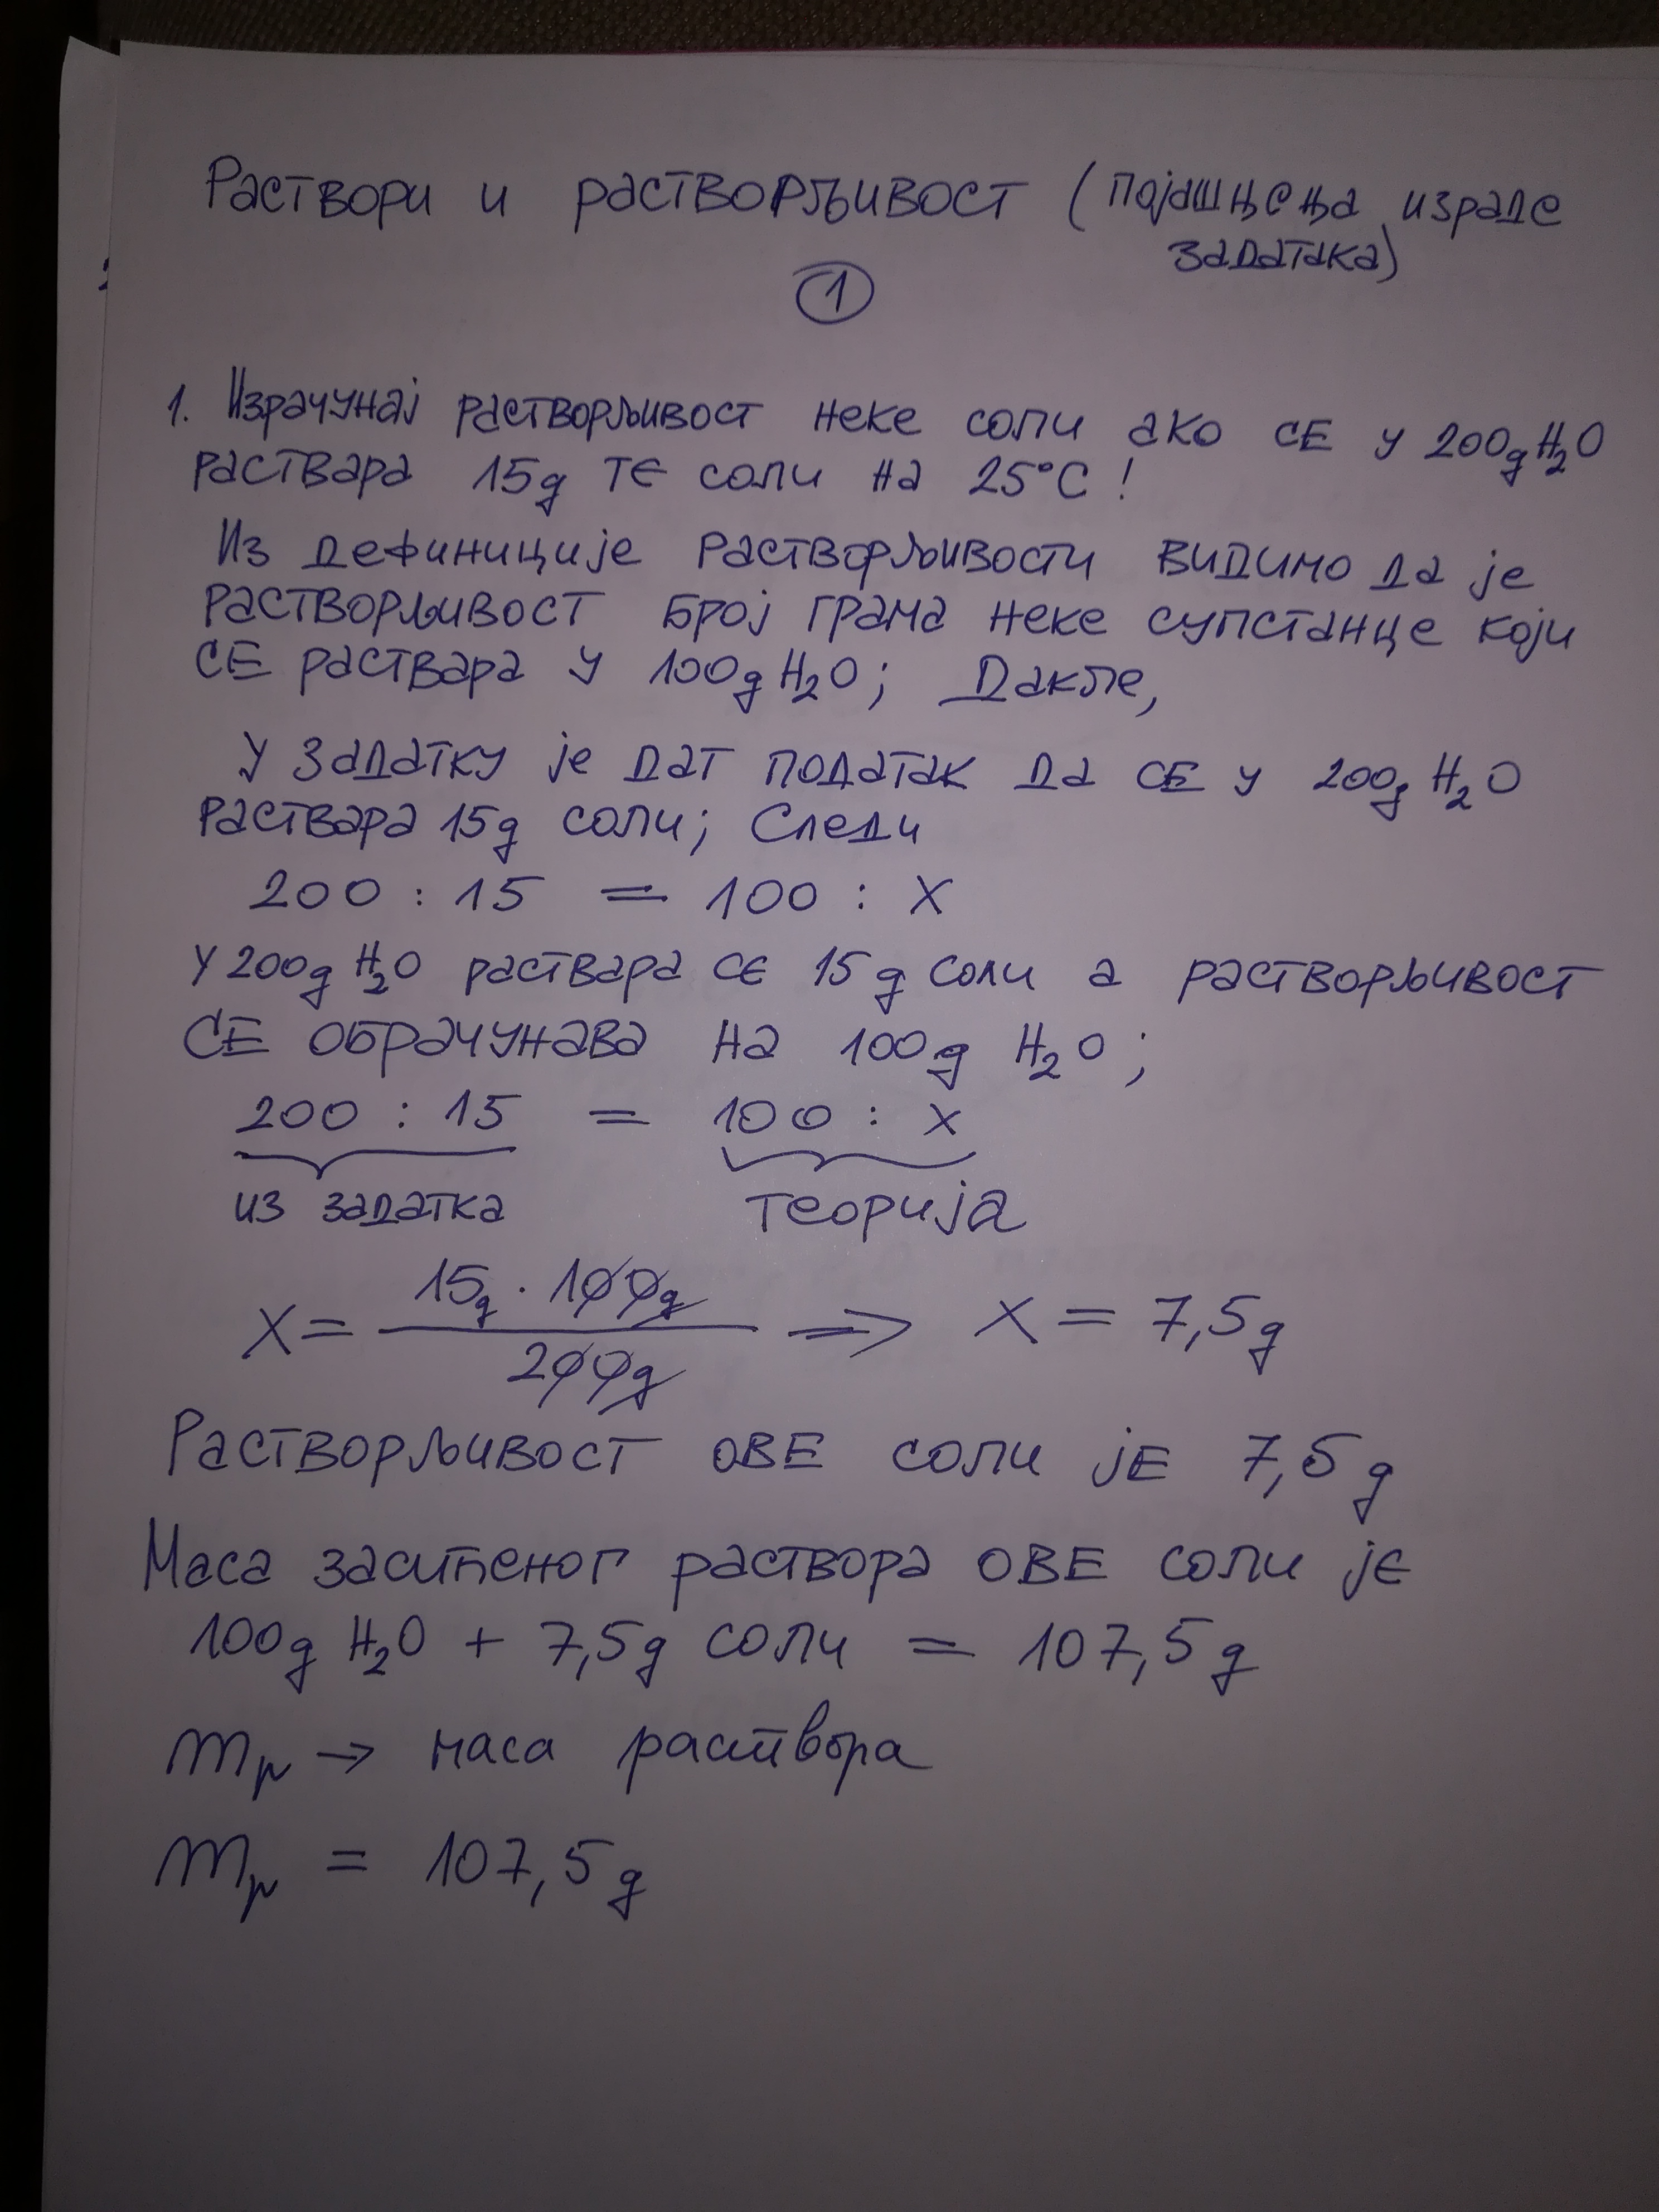 Раствори и растворљивост (појашњења израде
задатака)
1
1. Израчунај растворљивост неке соли ако се у 200g H₂O
раствара 15g те соли на 25°C!
Из дефиниције растворљивости видимо да је
растворљивост број грама неке супстанце који
се раствара у 100g H₂O; Дакле,
У задатку је дат податак да се у 200g H₂O
раствара 15g соли; Следи
200 : 15 = 100 : X
У 200g H₂O раствара се 15g соли а растворљивост
се обрачунава на 100g H₂O;
200 : 15 = 100 : X
из задатка теорија
15g · 100g
X = ⟹ X = 7,5g
200g
Растворљивост ове соли је 7,5g
Маса засићеног раствора ове соли је
100g H₂O + 7,5g соли = 107,5g
mр → маса раствора
mр = 107,5g